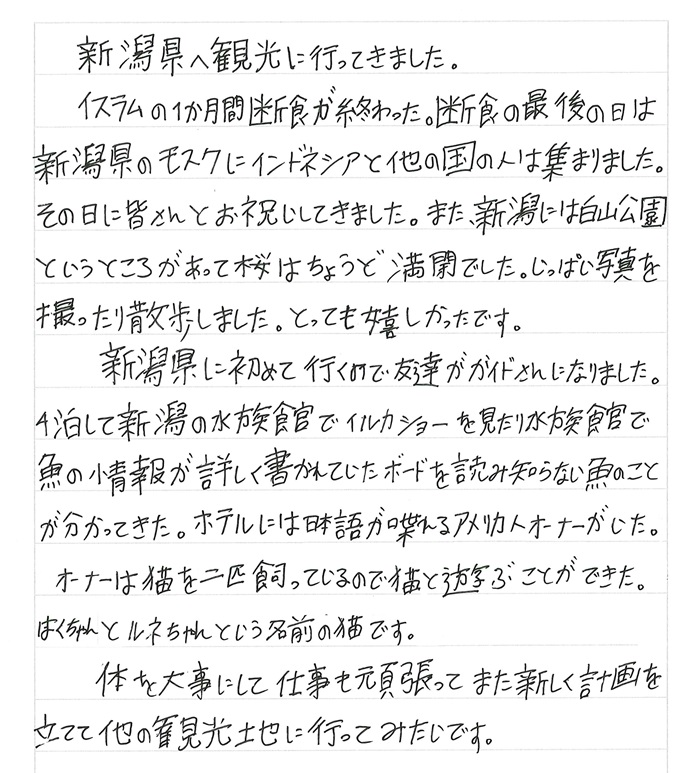 新潟県へ観光に行ってきました。
イスラムの1か月間断食が終わった。断食の最後の日は
新潟県のモスクにインドネシアと他の国の人は集まりました。
その日に皆さんとお祝いしてきました。また、新潟には白山公園
というところがあって桜はちょうど満開でした。いっぱい写真を
撮ったり散歩しました。とっても嬉しかったです。
新潟県に初めて行くので友達がガイドさんになりました。
4泊して新潟の水族館でイルカショーを見たり水族館で
魚の情報が詳しく書かれていたボードを読み知らない魚のこと
が分かってきた。ホテルには日本語が喋れるアメリカ人オーナーがいた。
オーナーは猫を二匹飼っているので猫と遊ぶことができた。
はくちゃんとルネちゃんという名前の猫です。
体を大事にして仕事も頑張ってまた新しく計画を
立てて他の観光土地に行ってみたいです。